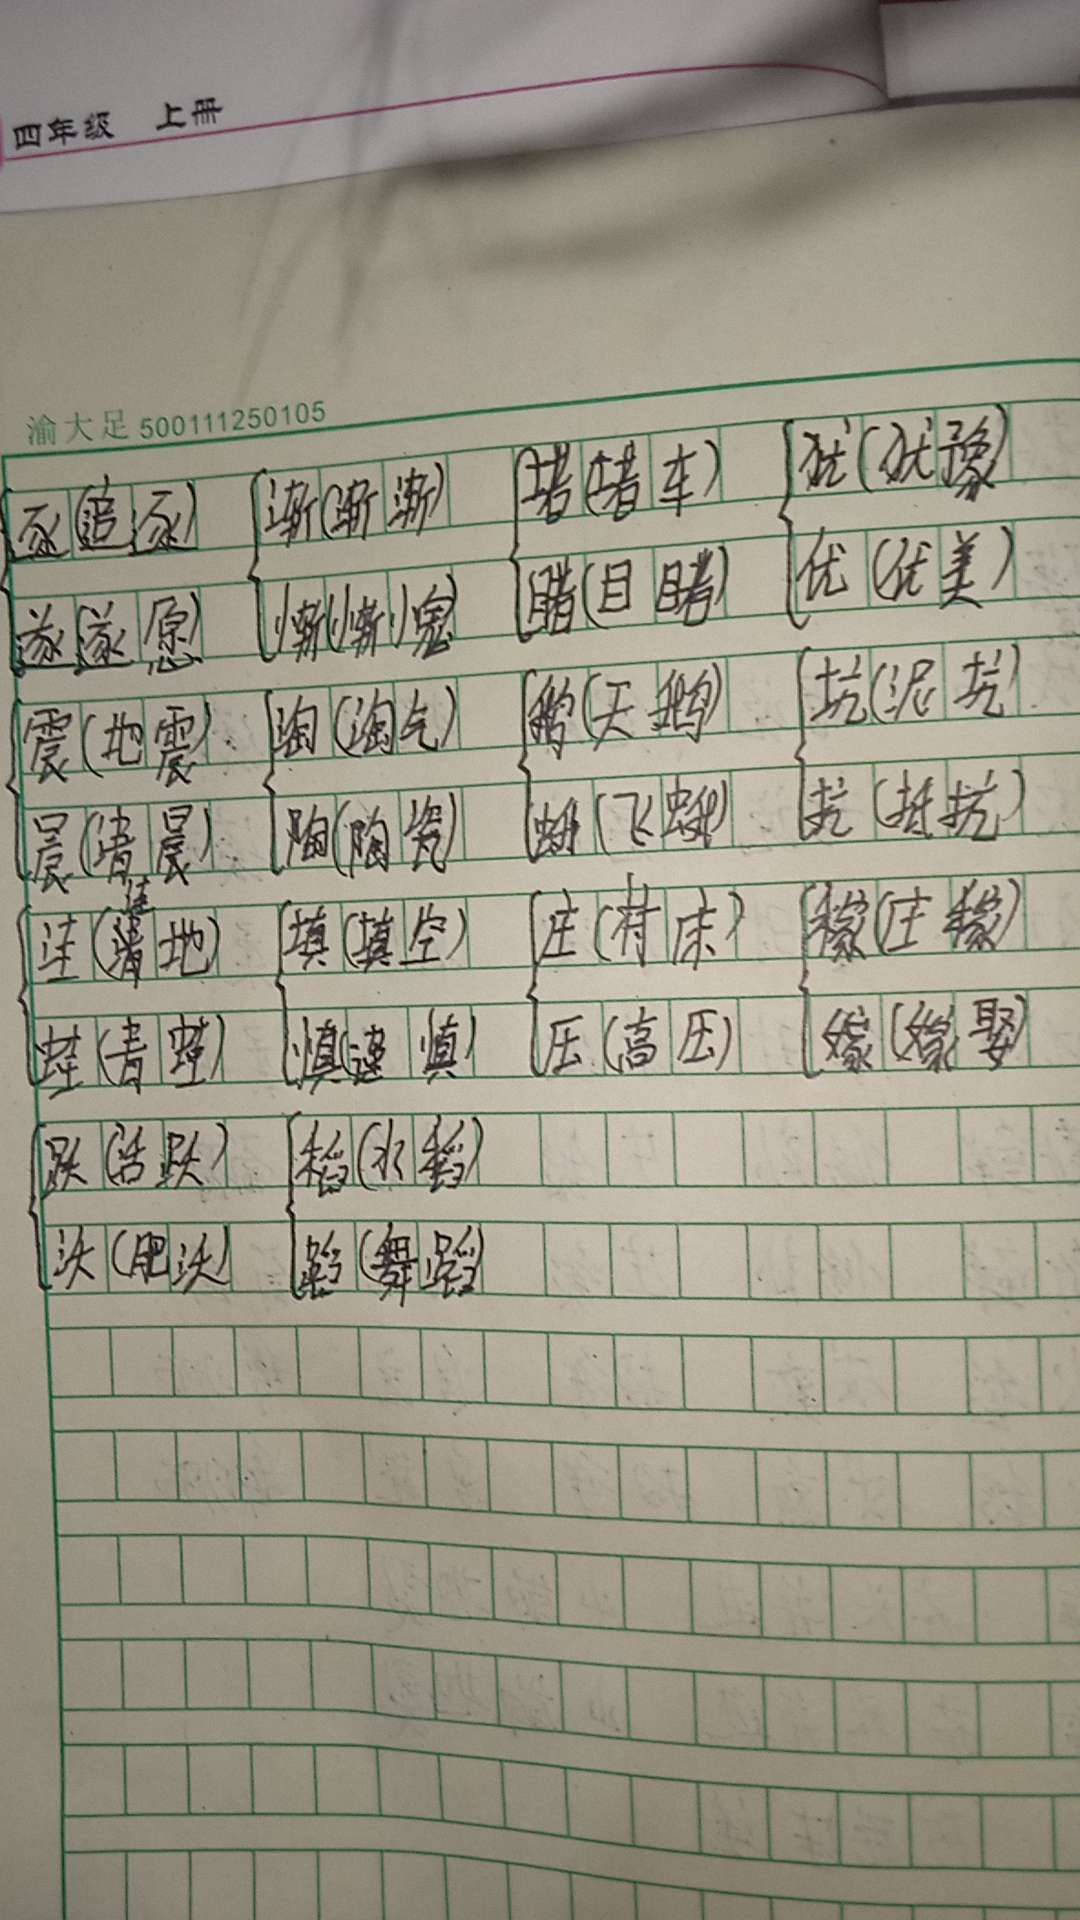 四年级 上册
渝大足 500111250105
逐(追逐) 渐(渐渐) 堵(堵车) 犹(犹豫)
遂(遂愿) 惭(惭愧) 睹(目睹) 优(优美)
震(地震) 淘(淘气) 鹅(天鹅) 坑(泥坑)
晨(清晨) 陶(陶瓷) 蛾(飞蛾) 抗(抵抗)
洼
洼(清地) 填(填空) 庄(村庄) 稼(庄稼)
蛙(青蛙) 慎(谨慎) 压(高压) 嫁(嫁娶)
跃(活跃) 稻(水稻)
沃(肥沃) 蹈(舞蹈)